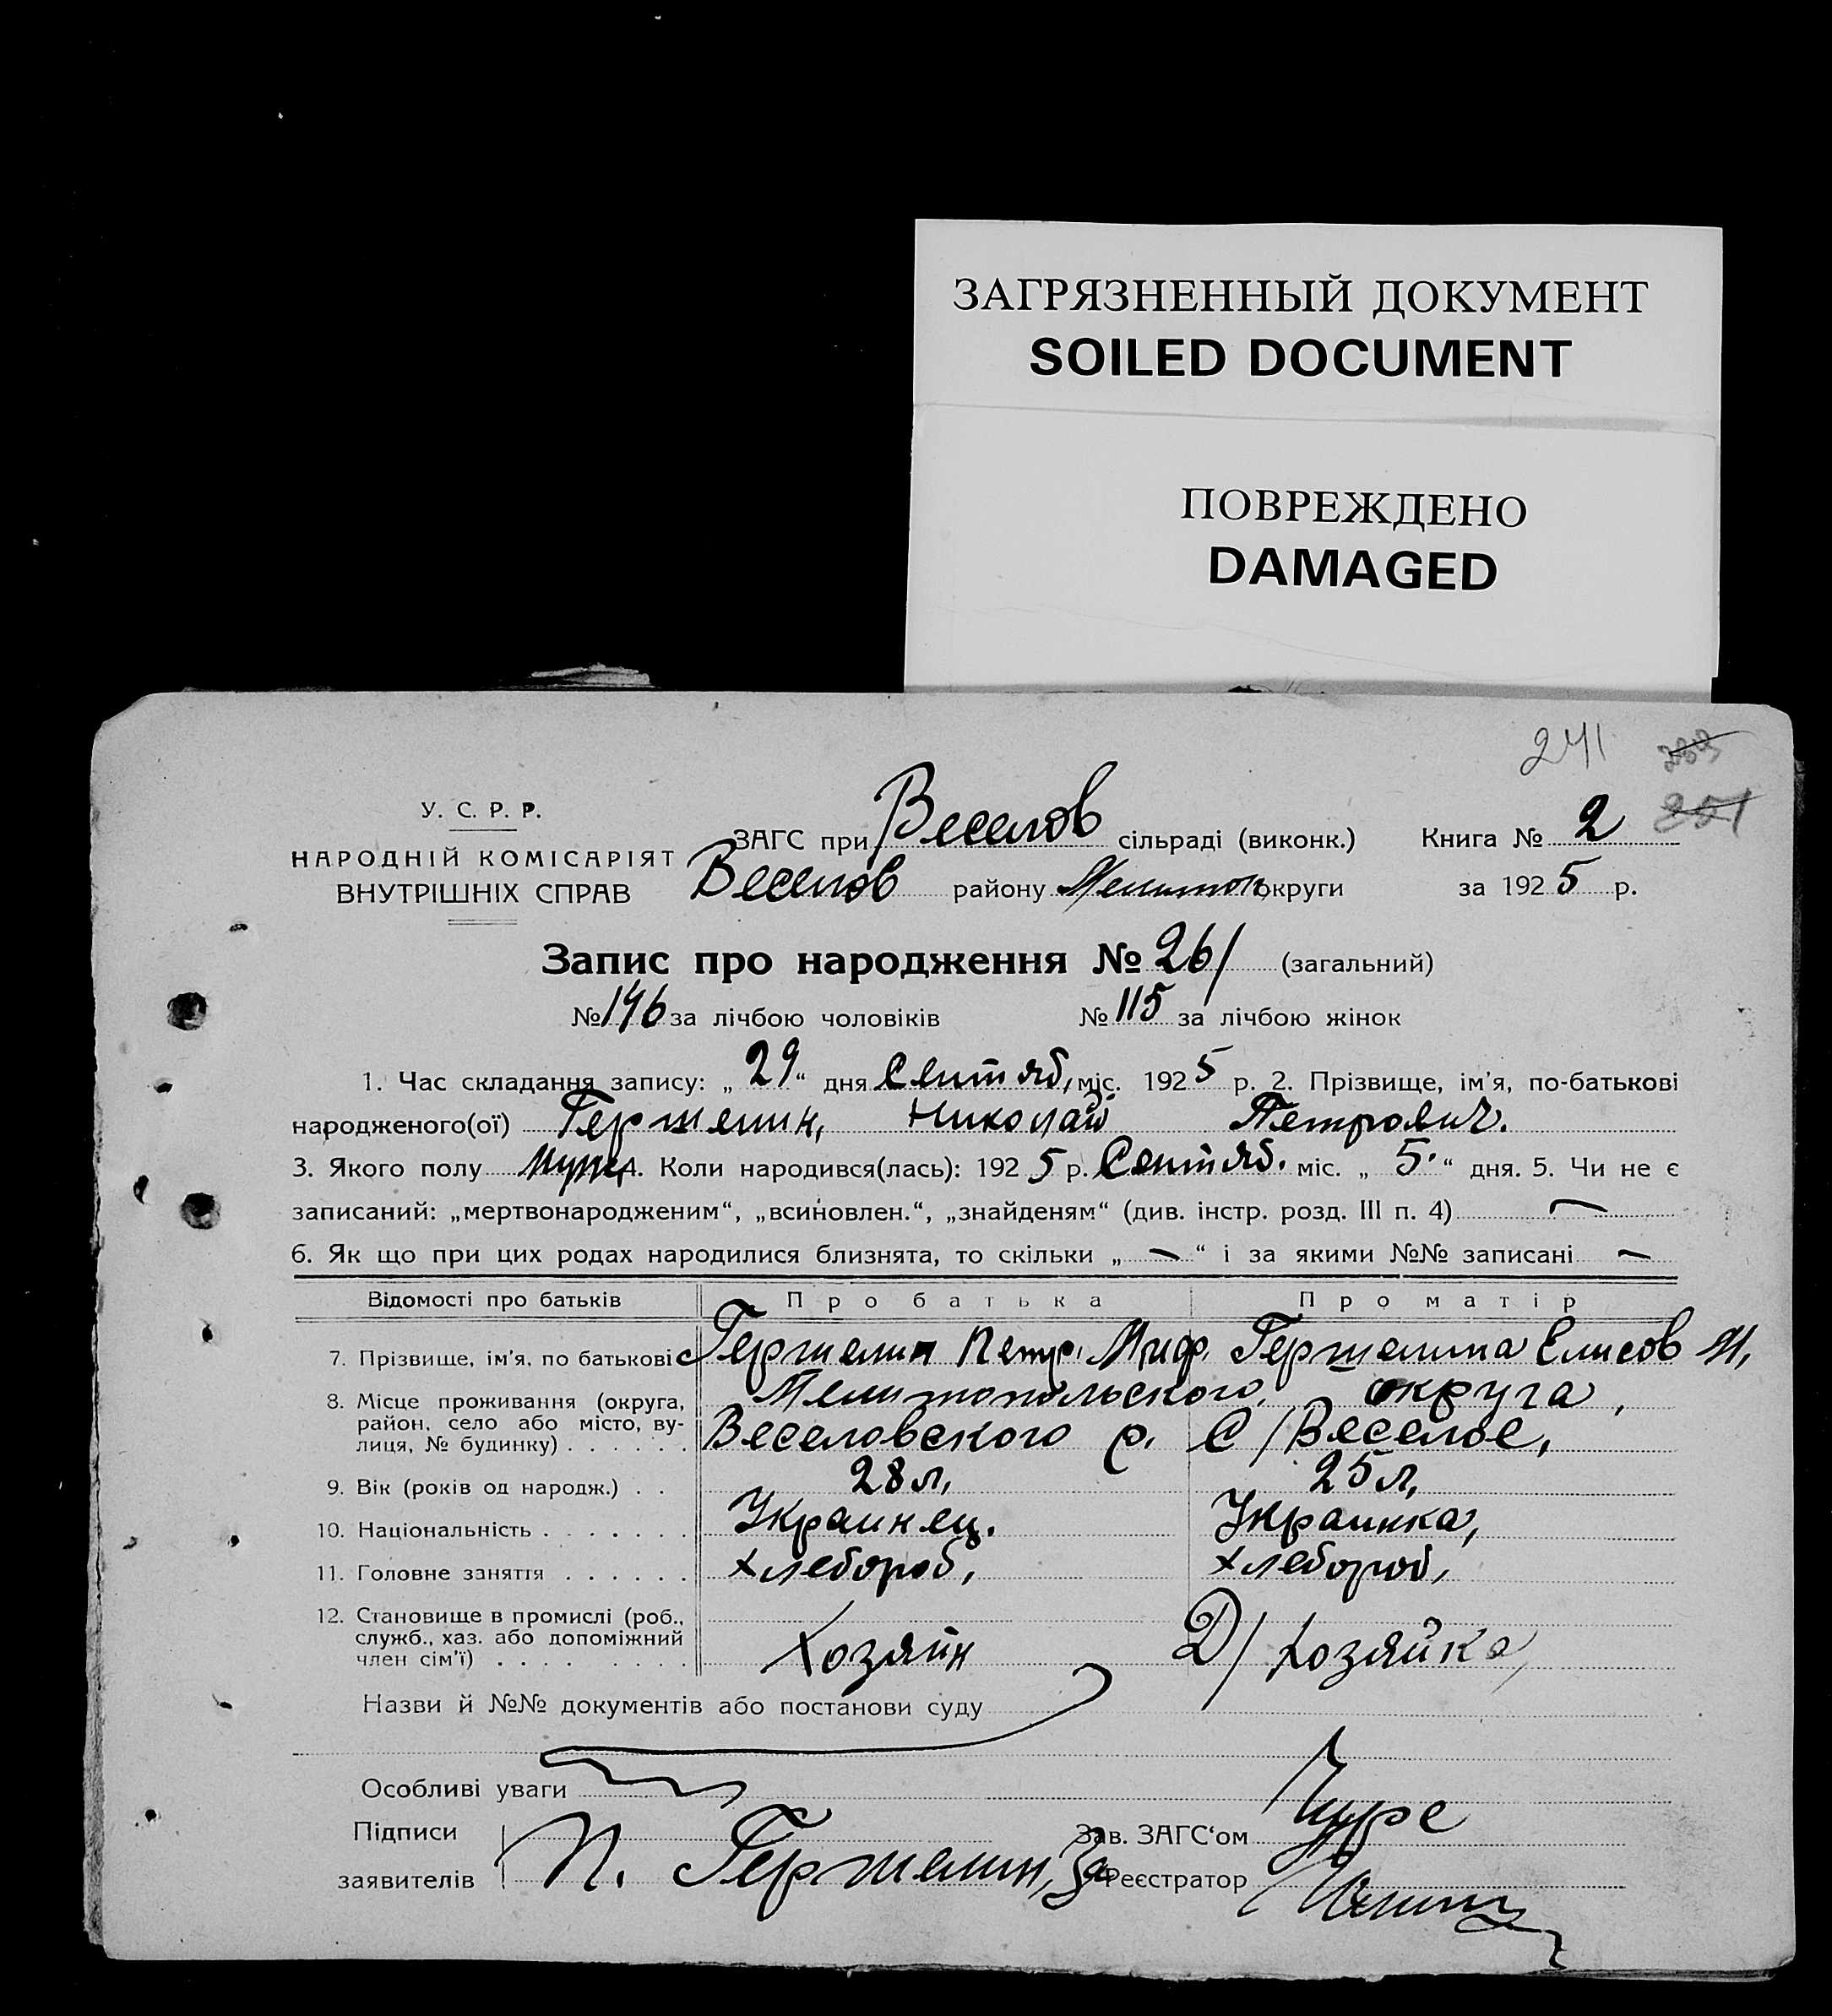 ЗАГРЯЗНЕННЫЙ ДОКУМЕНТ
SOILED DOCUMENT
ПОВРЕЖДЕНО
DAMAGED
241
251
У. С. Р. Р.
НАРОДНІЙ КОМІСАРІЯТ
ВНУТРІШНІХ СПРАВ
ЗАГС при Веселов сільраді (виконк.) Книга № 2
Веселов району Мелитоп. округи за 1925 р.
Запис про народження № 261 (загальний)
№ 146 за лічбою чоловіків № 115 за лічбою жінок
1. Час складання запису: „ 29 “ дня Сентяб. міс. 1925 р. 2. Прізвище, ім'я, по-батькові
народженого(ої) Гержелин, Николай Петрович.
3. Якого полу муж. 4. Коли народився(лась): 1925 р. Сентяб. міс. „ 5. “ дня. 5. Чи не є
записаний: „мертвонародженим“, „всиновлен.“, „знайденям“ (див. інстр. розд. III п. 4) —
6. Як що при цих родах народилися близнята, то скільки „ — “ і за якими №№ записані —
Відомості про батьків Про батька Про матір
7. Прізвище, ім'я, по батькові Гержелин Петр. Миф. Гержелина Елисов М.
8. Місце проживання (округа, район, село або місто, вулиця, № будинку) Мелитопольского округа,
Веселовского р. С/Веселое,
9. Вік (років од народж.) 28 л, 25 л,
10. Національність Украинец. Украинка,
11. Головне заняття хлебороб, хлебороб,
12. Становище в промислі (роб., служб., хаз. або допоміжний член сім'ї) Хозяин Д/хозяйка
Назви й №№ документів або постанови суду
Особливі уваги
Підписи
заявителів П. Гержелин, Зав. ЗАГС'ом
За Реєстратор